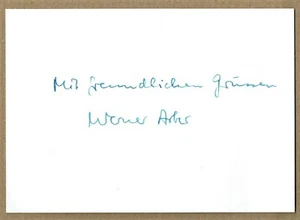 Mit freundlichen Grüssen
Werner Arber